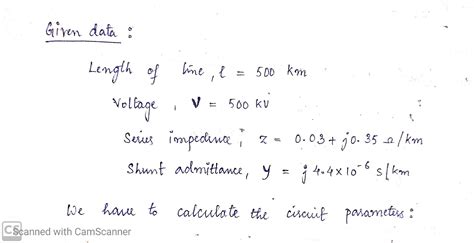 Given data :
Length of line, l = 500 km
Voltage, V = 500 kV
Series impedance, z = 0.03 + j0.35 Ω/km
Shunt admittance, y = j 4.4×10⁻⁶ s/km
We have to calculate the circuit parameters :
CS Scanned with CamScanner